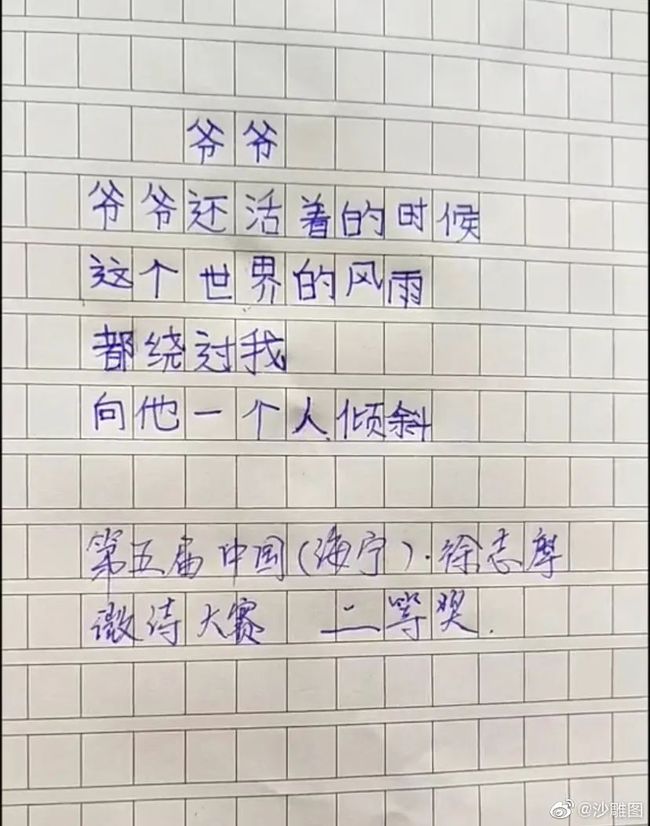 爷爷
爷爷还活着的时候
这个世界的风雨
都绕过我
向他一个人倾斜
第五届中国(海宁)·徐志摩
微诗大赛 二等奖.
@沙雕图